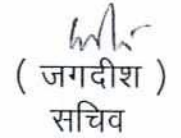 ( जगदीश )
सचिव